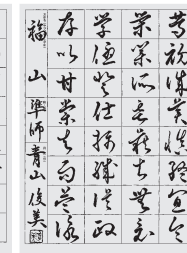 篤初誠美慎終宜令
榮業所基籍甚無竟
学優登仕攝職従政
存以甘棠去而益詠
福山 準師 青山俊美